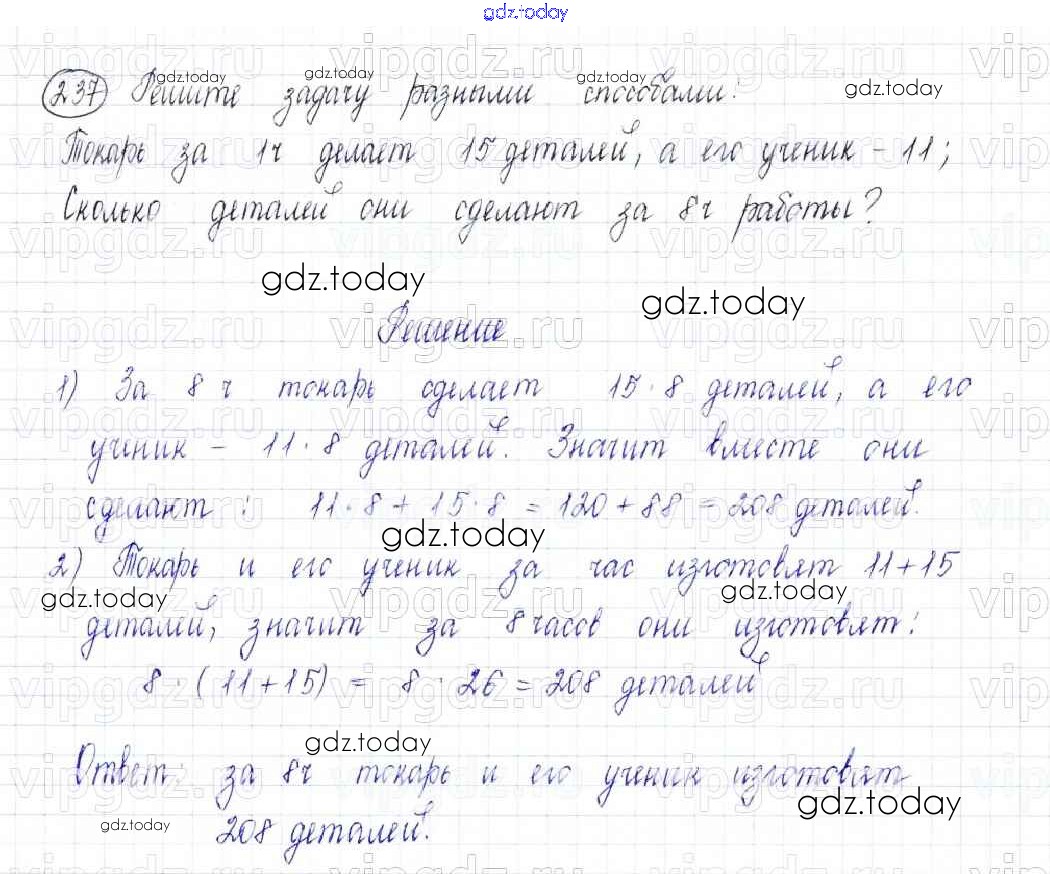 gdz.today
237 Решите задачу разными способами:
Токарь за 1ч делает 15 деталей, а его ученик - 11;
Сколько деталей они сделают за 8ч работы?
gdz.today
gdz.today
Решение
1) За 8 ч токарь сделает 15·8 деталей, а его
ученик - 11·8 деталей. Значит вместе они
сделают: 11·8 + 15·8 = 120 + 88 = 208 деталей.
gdz.today
2) Токарь и его ученик за час изготовят 11+15
gdz.today
gdz.today
деталей, значит за 8 часов они изготовят:
8·(11+15) = 8·26 = 208 деталей
gdz.today
Ответ: за 8ч токарь и его ученик изготовят
gdz.today
gdz.today
208 деталей.